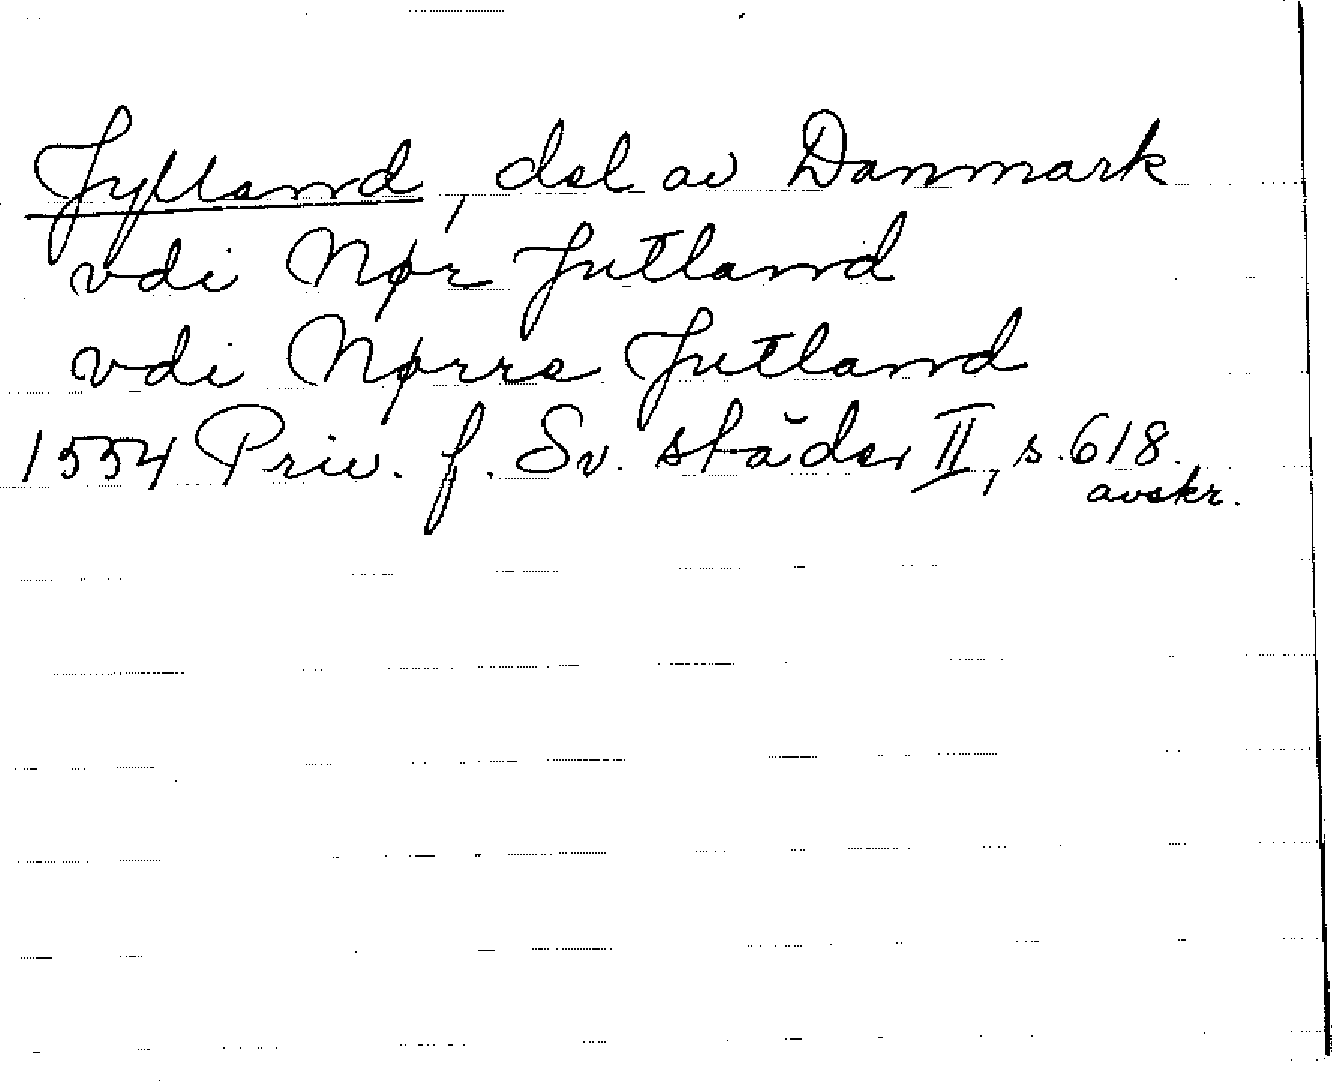 Jylland, del av Danmark
vdi Nør Jutland
vdi Nørre Jutland
1554 Priv. f. Sv. städer II, s. 618.
avskr.